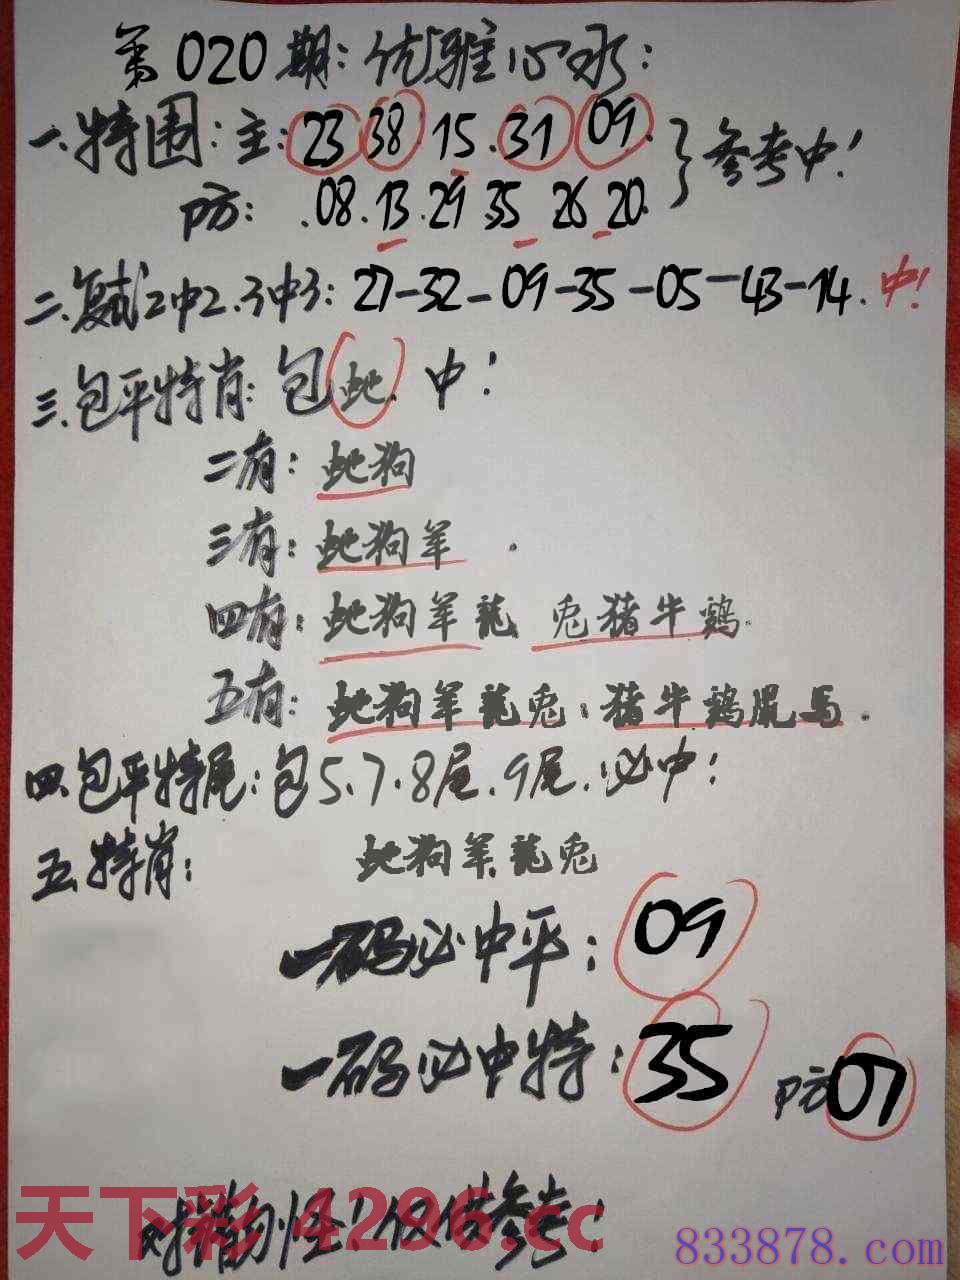 第020期:优雅心水:
一.特围:主:23 38.15.31 09.}参考中!
防:.08.13.29 35 26 20.
二.复试2中2.3中3:27-32-09-35-05-43-14.中!
三.包平特肖:包蛇.中!
二有:蛇狗
三有:蛇狗羊.
四有:蛇狗羊龍 兎猪牛鷄.
五有:蛇狗羊龍兎:猪牛鷄鼠馬.
四.包平特尾:包5.7.8尾.9尾.必中!
五.特肖:蛇狗羊.龍兎
一码必中平:09
一码必中特:35 防07
对错勿怪!仅供参考!
天下彩 4296.cc
833878.com